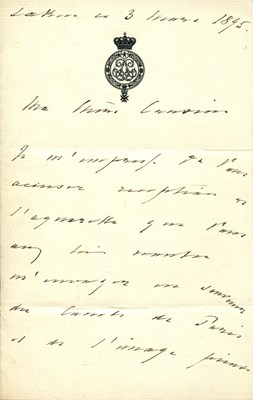 Laeken le 3 mars 1895.
Ma chère Cousine
Je m'empresse de vous
accuser réception de
l'aquarelle que vous
avez bien voulu
m'envoyer en souvenir
du Comte de Paris
et de l'image